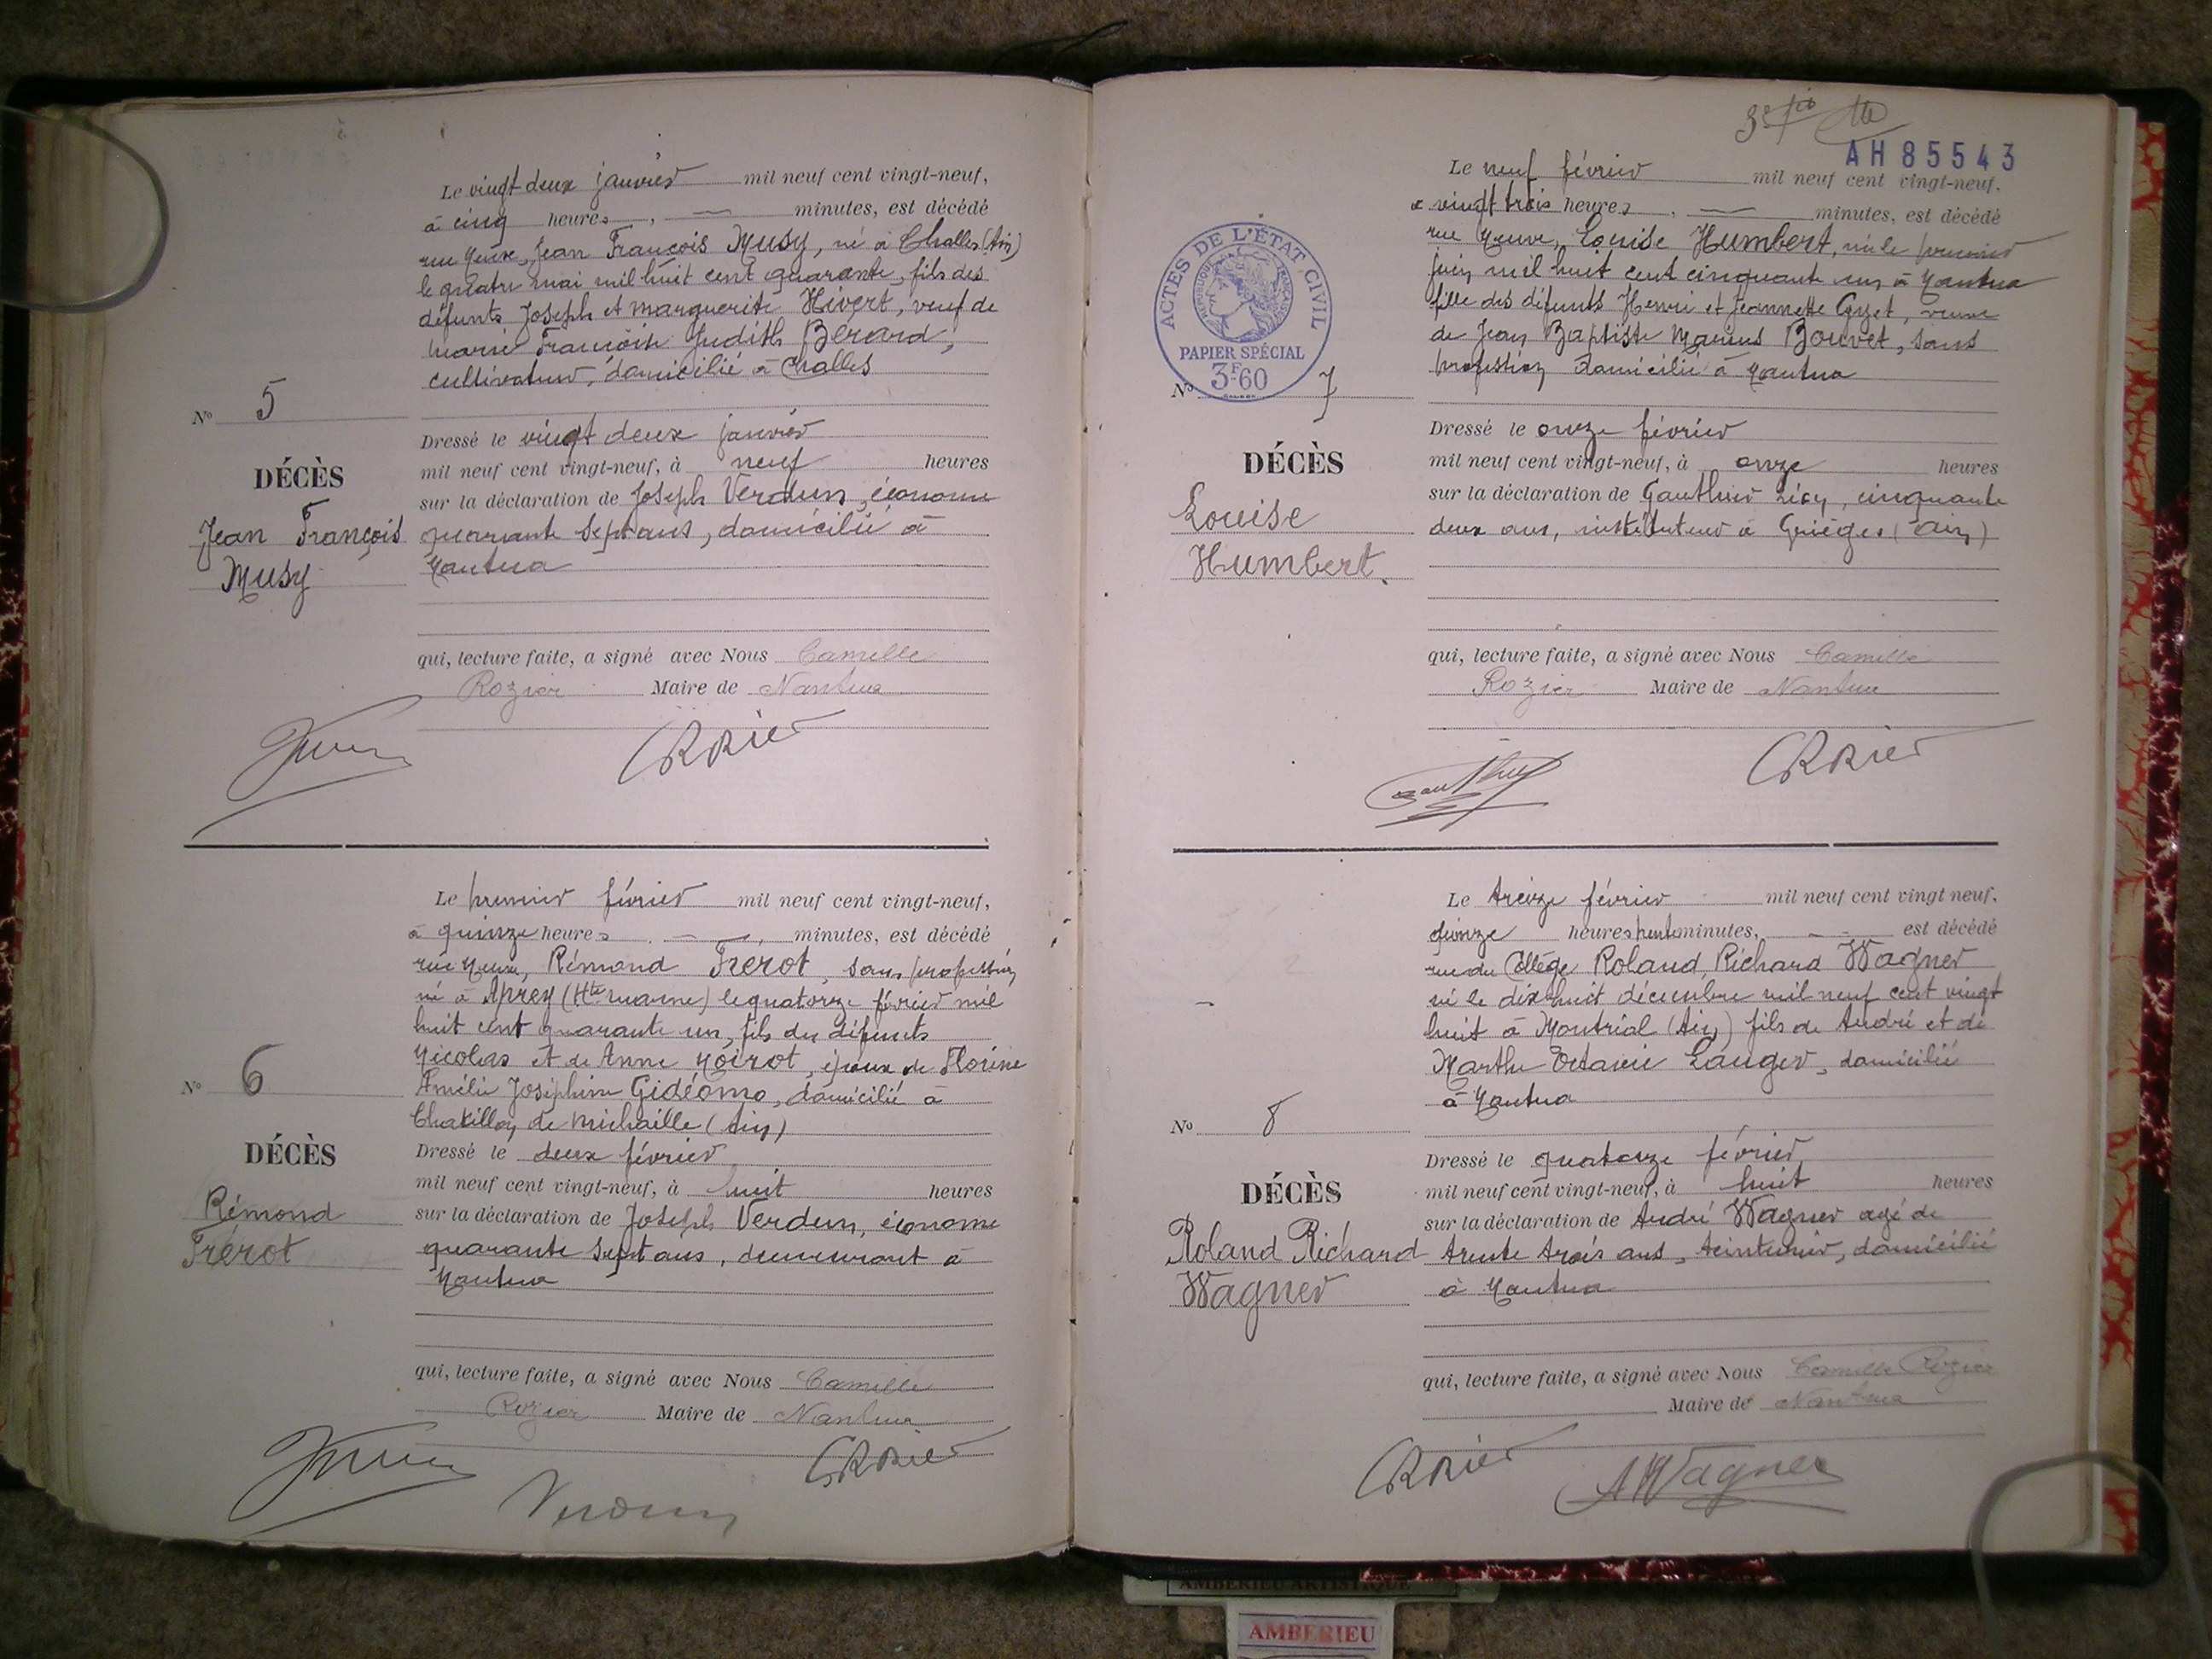 Le vingt deux janvier mil neuf cent vingt-neuf,
à cinq heures, — minutes, est décédé
rue Neuve, Jean François Musy, né à Challes (Ain)
le quatre mai mil huit cent quarante, fils des
défunts Joseph et Marguerite Hivert, veuf de
Marie Françoise Judith Bérard,
cultivateur, domicilié à Challes
No 5
DÉCÈS
Jean François
Musy
Dressé le vingt deux janvier
mil neuf cent vingt-neuf, à neuf heures
sur la déclaration de Joseph Verdun, économe
quarante sept ans, domicilié à
Nantua
qui, lecture faite, a signé avec Nous Camille
Rozier Maire de Nantua
CRozier
Le premier février mil neuf cent vingt-neuf,
à quinze heures, — minutes, est décédé
rue Neuve, Rémond Frérot, sans profession,
né à Aprey (Hte marne) le quatorze février mil
huit cent quarante un, fils des défunts
Nicolas et de Anne Noirot, époux de Florine
Amélie Joséphine Gidéomo, domicilié à
Chatillon de Michaille (Ain)
No 6
DÉCÈS
Rémond
Frérot
Dressé le deux février
mil neuf cent vingt-neuf, à huit heures
sur la déclaration de Joseph Verdun, économe
quarante sept ans, demeurant à
Nantua
qui, lecture faite, a signé avec Nous Camille
Rozier Maire de Nantua
CRozier
Verdun
AH85543
Le neuf février mil neuf cent vingt-neuf.
à vingt trois heures, — minutes, est décédé
rue Neuve, Louise Humbert, née le premier
juin mil huit cent cinquante un à Nantua
fille des défunts Henri et Jeannette Guyet, veuve
de Jean Baptiste Marius Bouvet, sans
profession domiciliée à Nantua
ACTES DE L'ÉTAT CIVIL
RÉPUBLIQUE FRANÇAISE
PAPIER SPÉCIAL
3F60
No 7
DÉCÈS
Louise
Humbert.
Dressé le onze février
mil neuf cent vingt-neuf, à onze heures
sur la déclaration de Gauthier Léon, cinquante
deux ans, instituteur à Grièges (Ain)
qui, lecture faite, a signé avec Nous Camille
Rozier Maire de Nantua
Gauthier
CRozier
Le treize février mil neuf cent vingt neuf.
quinze heures trente minutes, est décédé
rue du Collège Roland, Richard Wagner
né le dix huit décembre mil neuf cent vingt
huit à Montréal (Ain) fils de André et de
Marthe Octavie Lauger, domicilié
à Nantua
No 8
DÉCÈS
Roland Richard
Wagner
Dressé le quatorze février
mil neuf cent vingt-neuf, à huit heures
sur la déclaration de André Wagner agé de
trente trois ans, teinturier, domicilié
à Nantua
qui, lecture faite, a signé avec Nous Camille Rozier
Maire de Nantua
CRozier
AWagner
AMBERIEU ARTISTIQUE
AMBERIEU